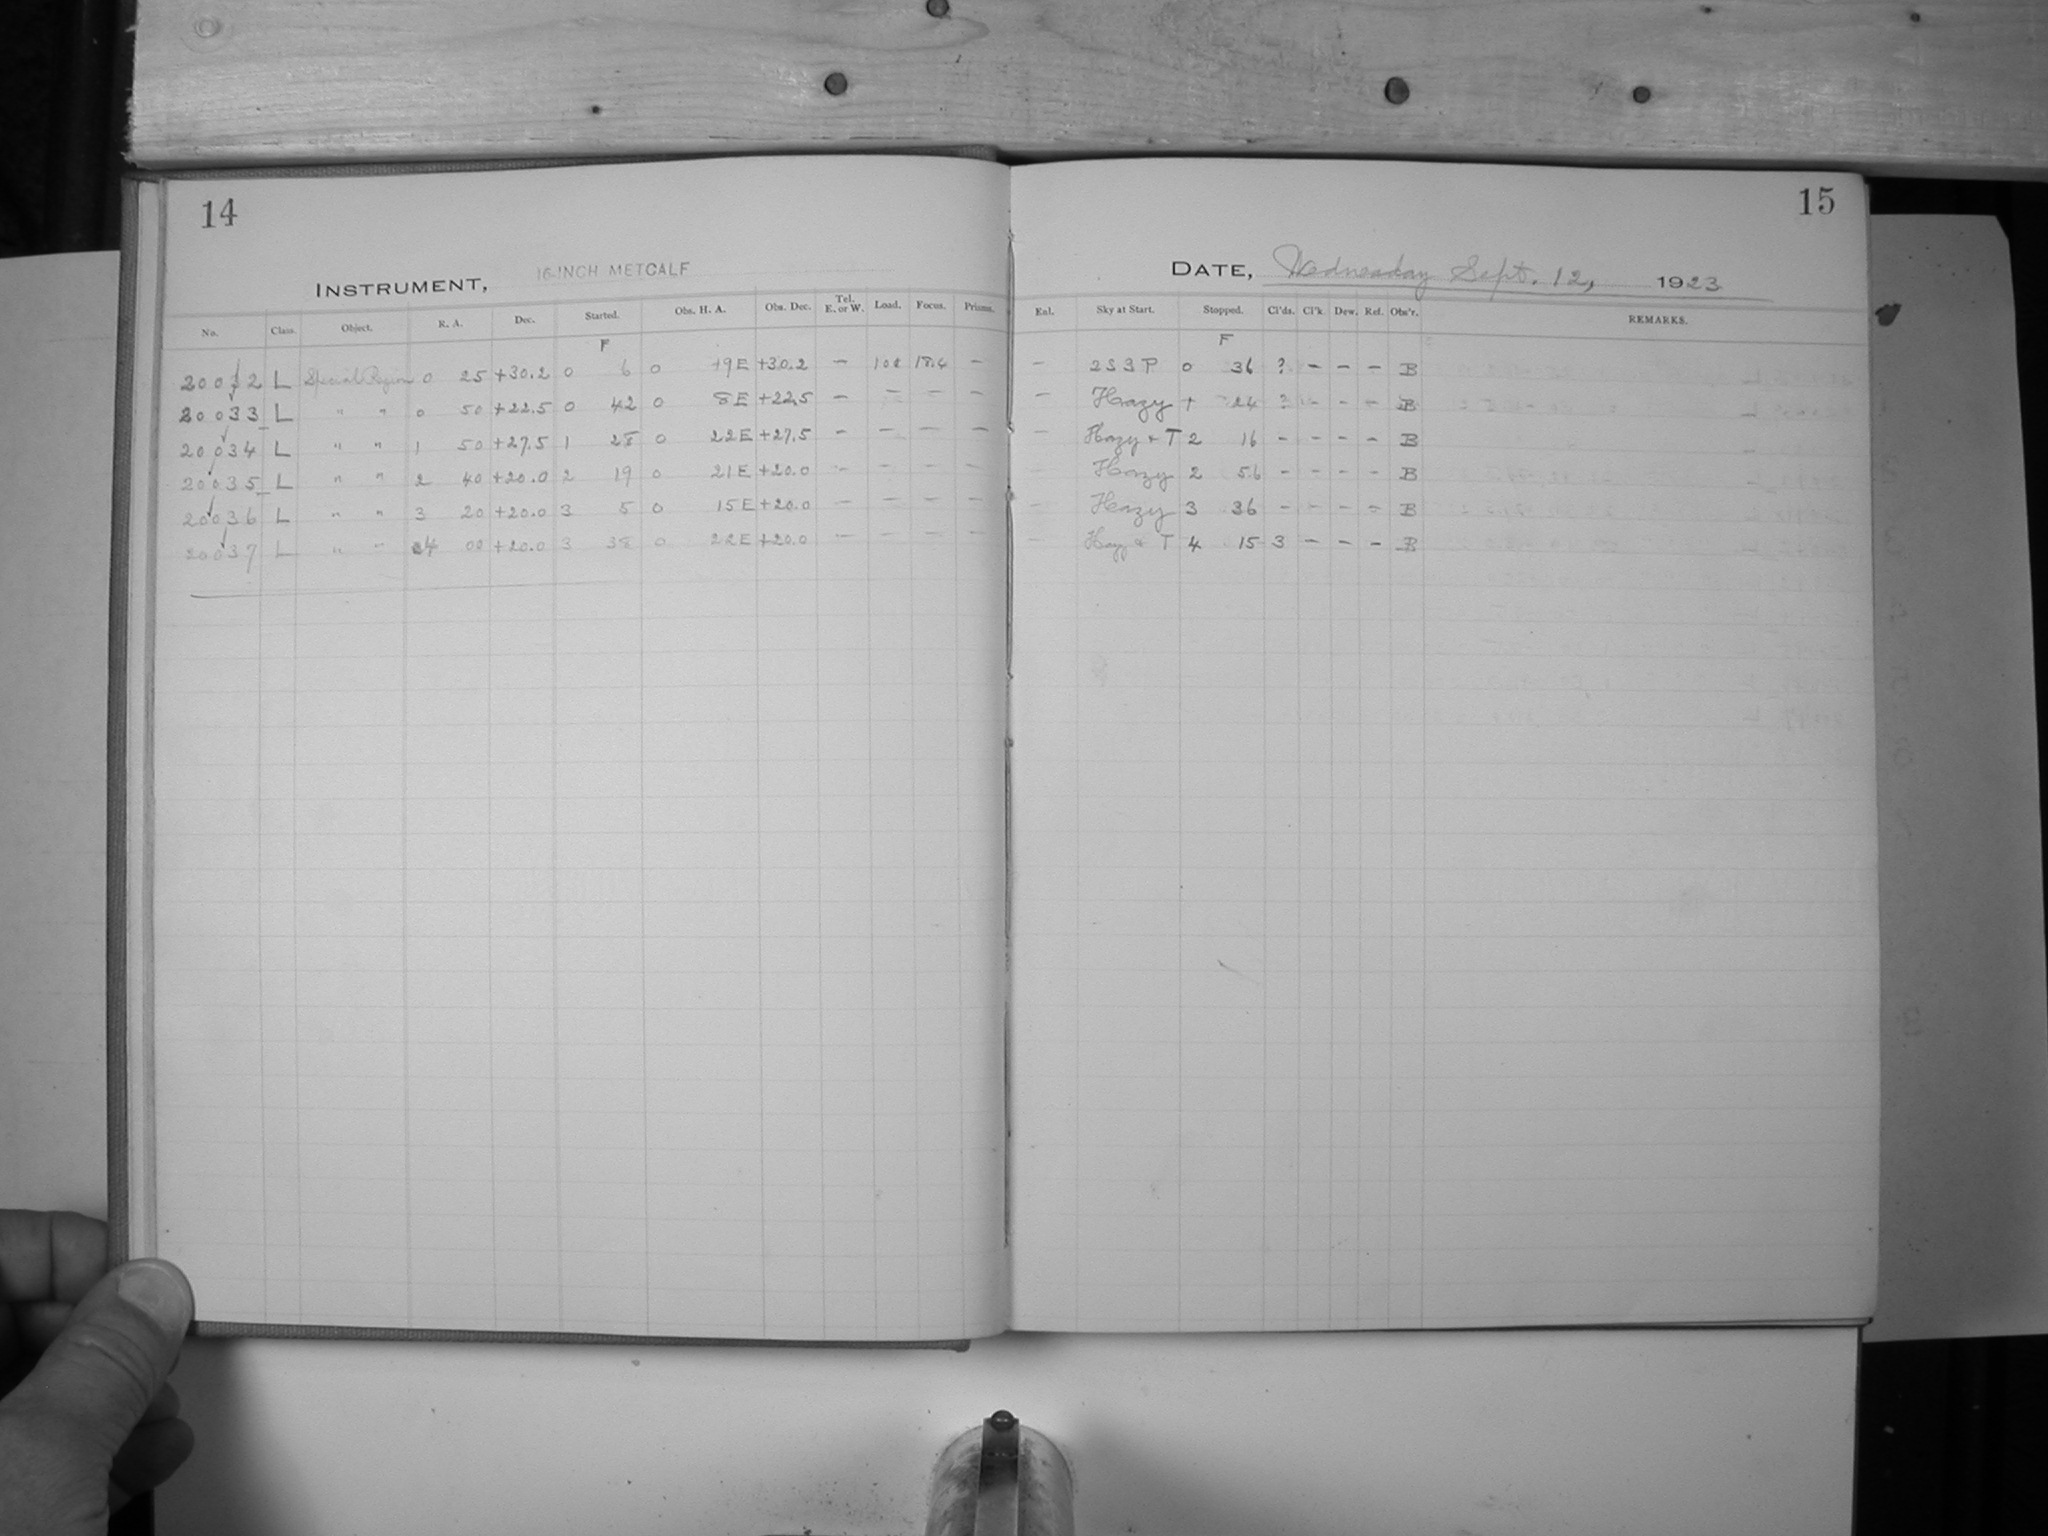 14
INSTRUMENT, 16-INCH METCALF
No. Class. Object. R. A. Dec. Started. Obs. H. A. Obs. Dec. Tel. E. or W. Load. Focus. Prisms.
F
20032 L Special Region 0 25 +30.2 0 6 0 +30.2 — 18.4 —
20033 L " " 0 50 +22.5 0 42 0 8E +22.5 — — — —
20034 L " " 1 50 +27.5 1 28 0 22E +27.5 — — — —
20035 L " " 2 40 +20.0 2 19 0 21E +20.0 — — — —
20036 L " " 3 20 +20.0 3 5 0 15E +20.0 — — — —
20037 L " " 4 00 +20.0 3 38 0 22E +20.0 — — — —
15
DATE, Wednesday Sept. 12, 1923
Enl. Sky at Start. Stopped. Cl'ds. Cl'k. Dew. Ref. Obs'r. REMARKS.
F
— 2S3P 0 36 ? — — — B
— Hazy 1 24 ? — — — B
— Hazy + T 2 16 - - - - B
Hazy 2 56 - - - - B
— Hazy 3 36 - - - - B
— Hazy & T 4 15 3 — — — B